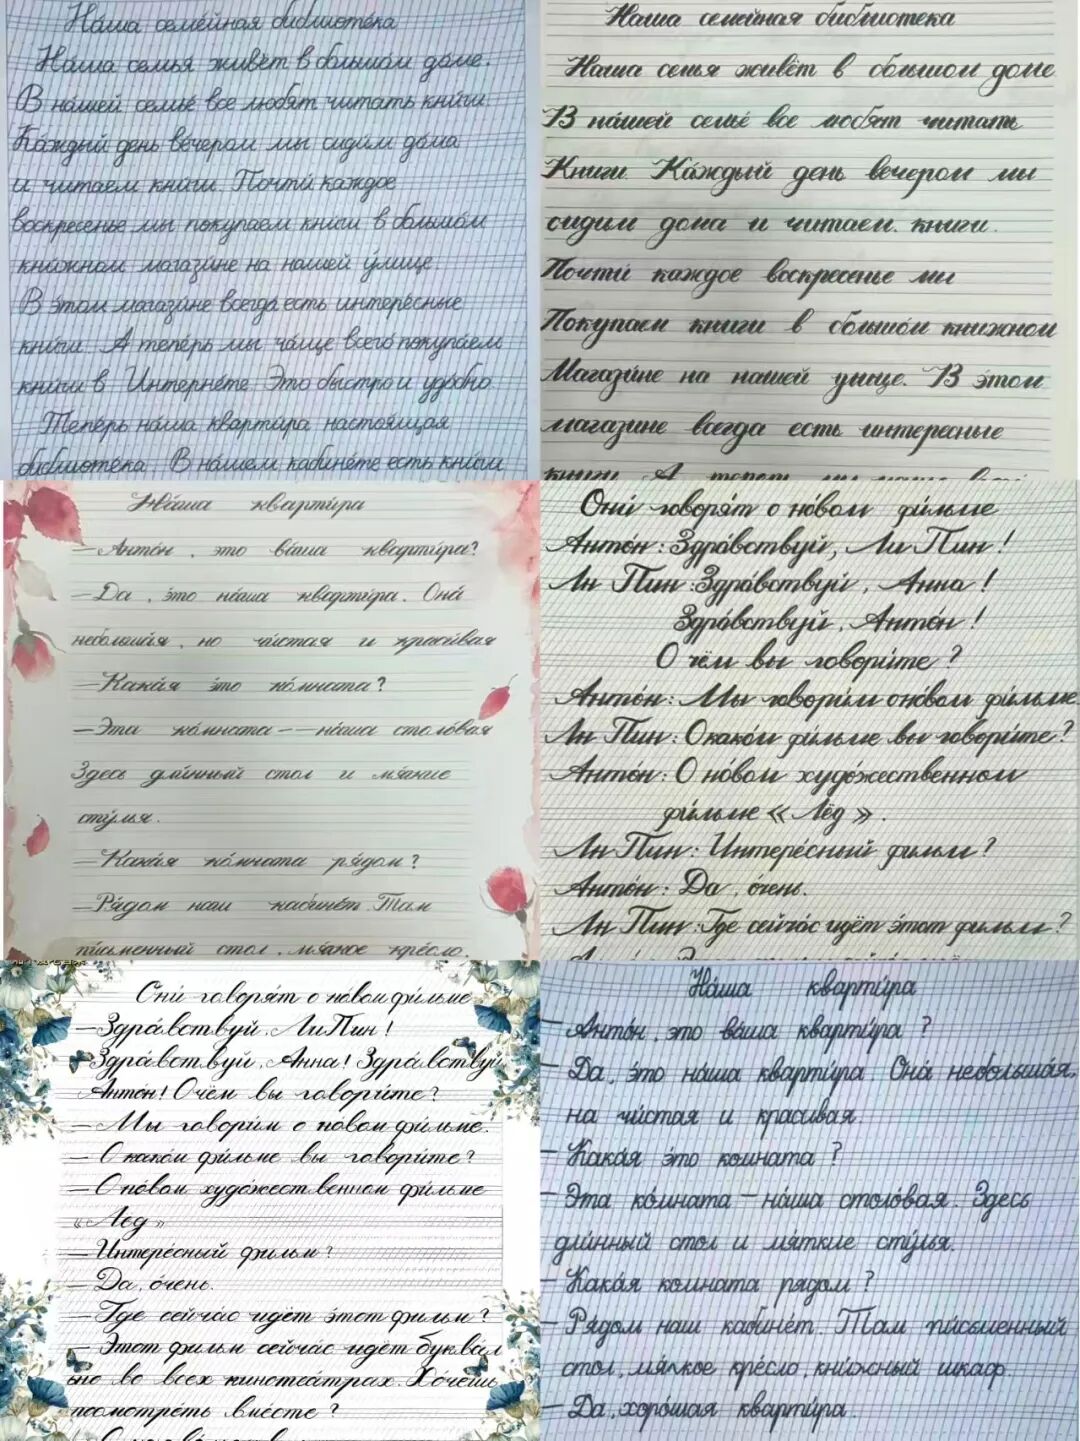 Наша семе́йная библиоте́ка
На́ша семья́ живёт в большо́м до́ме.
В на́шей семье́ все лю́бят чита́ть кни́ги.
Ка́ждый день ве́чером мы сиди́м до́ма
и чита́ем кни́ги. Почти́ ка́ждое
воскресенье мы покупа́ем книги в большо́м
кни́жном магази́не на нашей у́лице.
В э́том магази́не всегда́ есть интере́сные
кни́ги. А тепе́рь мы ча́ще всего́ покупа́ем
кни́ги в Интерне́те. Это бы́стро и удо́бно.
Тепе́рь на́ша кварти́ра настоя́щая
библиоте́ка. В на́шем кабине́те есть книги
Наша семейная библиотека
Наша семья живёт в большом доме
В на́шей семье́ все любят читать
Книги. Ка́ждый день вечером мы
сидим дома и читаем книги.
Почти́ каждое воскресенье мы
Покупаем книги в большо́м книжном
Магази́не на нашей улице. В этом
магазине всегда есть интересные
книги. А теперь мы чаще всего
На́ша кварти́ра
— Анто́н, это ва́ша кварти́ра?
— Да, э́то на́ша кварти́ра. Она́
небольша́я, но чи́стая и краси́вая
— Кака́я э́то ко́мната?
— Эта ко́мната — — на́ша столо́вая
Здесь дли́нный стол и мя́гкие
сту́лья.
— Кака́я ко́мната ря́дом?
— Ря́дом наш кабине́т. Там
пи́сьменный стол, мя́гкое кре́сло,
Они́ говоря́т о но́вом фи́льме
Анто́н: Здра́вствуй, Ли Пин!
Ли Пин: Здра́вствуй, Анна!
Здра́вствуй, Анто́н!
О чём вы говори́те?
Анто́н: Мы говори́м о но́вом фи́льме.
Ли Пин: О како́м фи́льме вы говори́те?
Анто́н: О но́вом худо́жественном
фи́льме «Лёд».
Ли Пин: Интере́сный фильм?
Анто́н: Да, о́чень.
Ли Пин: Где сейча́с идёт э́тот фильм?
Они́ говоря́т о но́вом фи́льме
— Здра́вствуй, Ли Пин!
— Здра́вствуй, Анна! Здра́вствуй,
Анто́н! О чём вы говори́те?
— Мы говори́м о новом фи́льме.
— О како́м фи́льме вы говори́те?
— О но́вом худо́жественном фи́льме
«Лёд»
— Интере́сный фильм?
— Да, о́чень.
— Где сейча́с идёт э́тот фильм?
— Этот фильм сейча́с идёт буква́л
но во всех кинотеа́трах. Хо́чешь
посмотре́ть вме́сте?
На́ша кварти́ра
— Анто́н, это ва́ша кварти́ра?
— Да, э́то на́ша кварти́ра. Она́ небольша́я,
на чи́стая и краси́вая.
— Кака́я э́то комната?
— Эта ко́мната — на́ша столо́вая. Здесь
дли́нный стол и мя́гкие сту́лья.
— Кака́я комната рядом?
— Ря́дом наш кабине́т. Там пи́сьменный
стол, мя́гкое кре́сло, кни́жный шкаф.
— Да, хоро́шая кварти́ра.